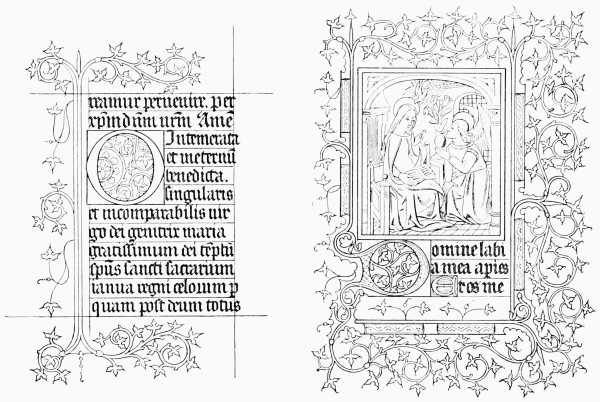 tramur peruenire. Per
xp̄m dn̄m nr̄m Amē
O Intemerata
et in eternū
benedicta.
singularis
et incomparabilis uir
go dei genitrix maria
gratissimum dei tēplū
sp̄us sancti sacrarium
ianua regni celorum p
quam post deum totus
Domine labi
a mea apies
Et os me